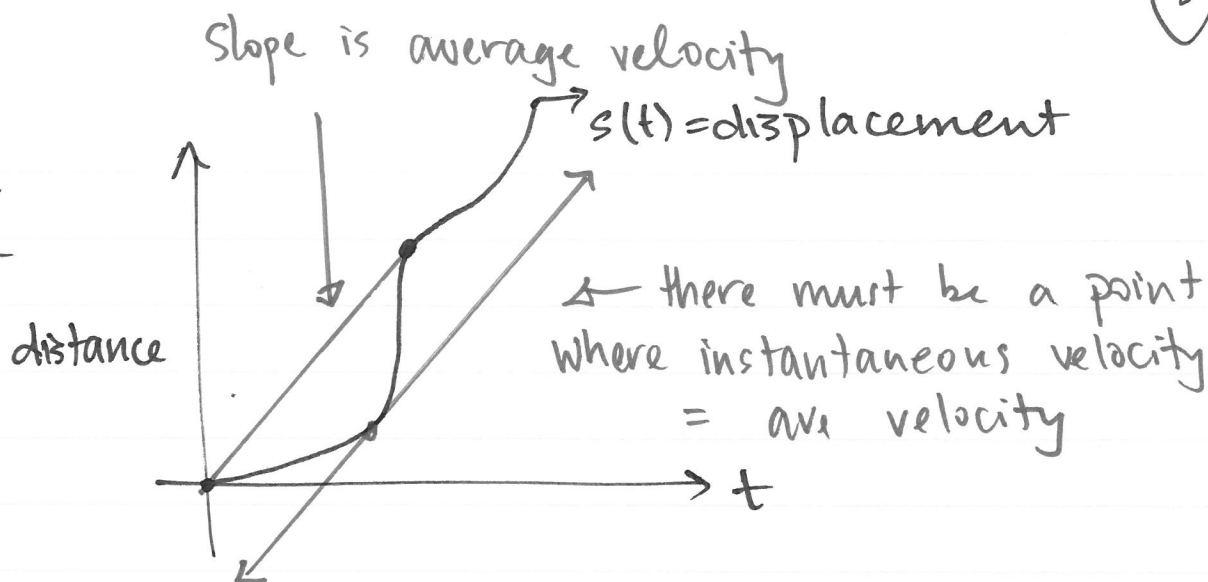 Slope is average velocity
s(t) = displacement
distance
← there must be a point
where instantaneous velocity
= ave velocity
t